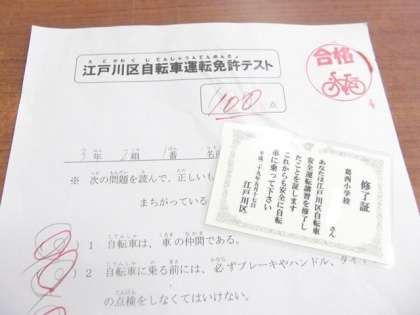 えどがわくじてんしゃうんてんめんきょ
江戸川区自転車運転免許テスト
合格
100点
3年 2組 1番 名前
※ 次の問題を読んで、正しいも
まちがっている
1 自転車は、車の仲間である。
2 自転車に乗る前には、必ずブレーキやハンドル、タイ
の点検をしなくてはいけない。
修了証
葛西小学校
さん
あなたは江戸川区自転車
安全運転講習を修了し
たことを証します
これからも安全に自転
車に乗って下さい
平成二十九年五月十七日
江戸川区